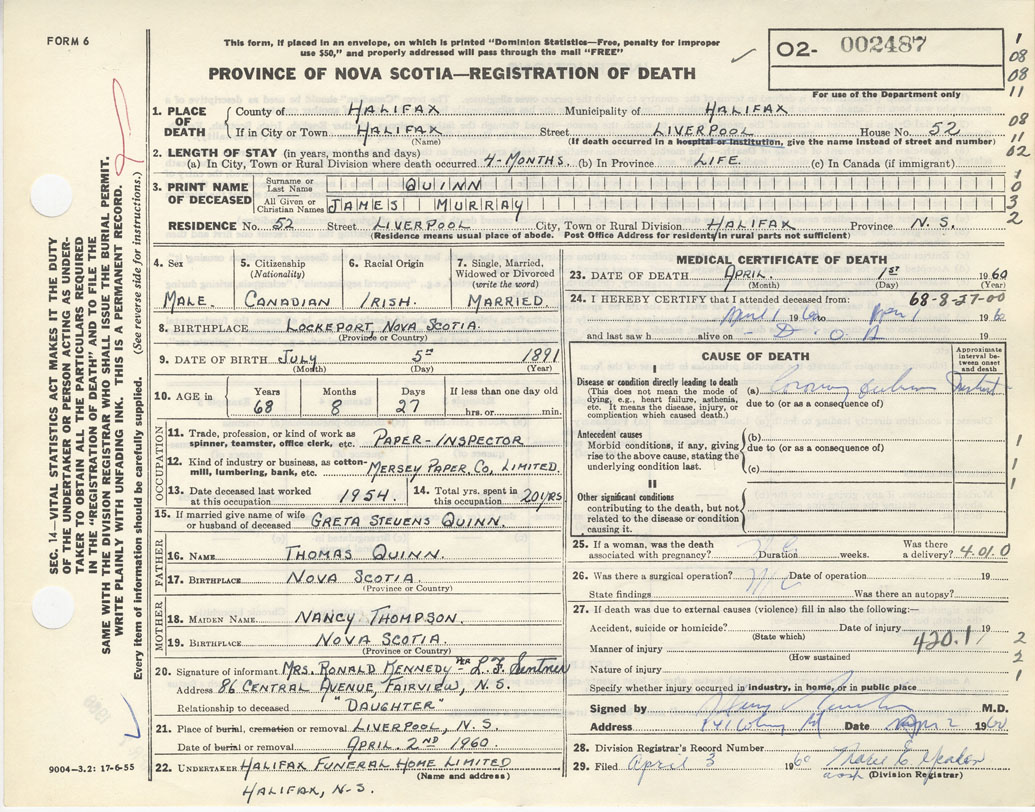 FORM 6
This form, if placed in an envelope, on which is printed "Dominion Statistics—Free, penalty for improper
use $50," and properly addressed will pass through the mail "FREE"
PROVINCE OF NOVA SCOTIA—REGISTRATION OF DEATH
02- 002487
For use of the Department only
1
08
08
11
08
11
02
1
0
3
2
1. PLACE OF DEATH
County of HALIFAX Municipality of HALIFAX
If in City or Town HALIFAX Street LIVERPOOL House No. 52
(Name) (If death occurred in a hospital or institution, give the name instead of street and number)
2. LENGTH OF STAY (in years, months and days)
(a) In City, Town or Rural Division where death occurred 4-MONTHS. (b) In Province LIFE. (c) In Canada (if immigrant)
3. PRINT NAME OF DECEASED
Surname or Last Name QUINN
All Given or Christian Names JAMES MURRAY
RESIDENCE No. 52 Street LIVERPOOL City, Town or Rural Division HALIFAX Province N.S.
(Residence means usual place of abode. Post Office Address for residents in rural parts not sufficient)
4. Sex 5. Citizenship 6. Racial Origin 7. Single, Married,
(Nationality) Widowed or Divorced
(write the word)
MALE. CANADIAN IRISH. MARRIED
8. BIRTHPLACE LOCKEPORT, NOVA SCOTIA.
(Province or Country)
9. DATE OF BIRTH JULY 5th 1891
(Month) (Day) (Year)
10. AGE in Years Months Days If less than one day old
68 8 27 hrs. or min.
OCCUPATION
11. Trade, profession, or kind of work as
spinner, teamster, office clerk, etc. PAPER-INSPECTOR
12. Kind of industry or business, as cotton-
mill, lumbering, bank, etc. MERSEY PAPER CO, LIMITED.
13. Date deceased last worked
at this occupation 1954.
14. Total yrs. spent in
this occupation 20 YRS
15. If married give name of wife
or husband of deceased GRETA STEVENS QUINN.
FATHER
16. NAME THOMAS QUINN.
17. BIRTHPLACE NOVA SCOTIA.
(Province or Country)
MOTHER
18. MAIDEN NAME NANCY THOMPSON.
19. BIRTHPLACE NOVA SCOTIA.
(Province or Country)
20. Signature of informant MRS. RONALD KENNEDY- PER L.F. Sentner
Address 86 CENTRAL AVENUE, FAIRVIEW, N.S.
Relationship to deceased "DAUGHTER"
21. Place of burial, cremation or removal LIVERPOOL, N.S.
Date of burial or removal APRIL. 2ND 1960.
22. UNDERTAKER HALIFAX FUNERAL HOME LIMITED
(Name and address)
HALIFAX, N-S.
MEDICAL CERTIFICATE OF DEATH
23. DATE OF DEATH APRIL. 1ST 1960
(Month) (Day) (Year)
24. I HEREBY CERTIFY that I attended deceased from: 68-8-27-00
April 1 1960 to April 1 196
and last saw h alive on D.O.A
CAUSE OF DEATH
Approximate interval between onset and death
I
Disease or condition directly leading to death
(This does not mean the mode of
dying, e.g., heart failure, asthenia,
etc. It means the disease, injury, or
complication which caused death.)
(a)
due to (or as a consequence of)
Antecedent causes
Morbid conditions, if any, giving
rise to the above cause, stating the
underlying condition last.
(b)
due to (or as a consequence of)
(c)
II
Other significant conditions
contributing to the death, but not
related to the disease or condition
causing it.
1
1
1
25. If a woman, was the death
associated with pregnancy? Duration weeks. Was there
a delivery? 4.01.0
26. Was there a surgical operation? Date of operation 19
State findings Was there an autopsy?
27. If death was due to external causes (violence) fill in also the following:—
Accident, suicide or homicide? Date of injury 19
(State which) 420.1
Manner of injury
(How sustained
Nature of injury
2
2
1
Specify whether injury occurred in industry, in home, or in public place
Signed by M.D.
Address Date 2 1960
28. Division Registrar's Record Number
29. Filed April 3 1960
(Division Registrar)
SEC. 14—VITAL STATISTICS ACT MAKES IT THE DUTY
OF THE UNDERTAKER OR PERSON ACTING AS UNDER-
TAKER TO OBTAIN ALL THE PARTICULARS REQUIRED
IN THE "REGISTRATION OF DEATH" AND TO FILE THE
SAME WITH THE DIVISION REGISTRAR WHO SHALL ISSUE THE BURIAL PERMIT.
WRITE PLAINLY WITH UNFADING INK. THIS IS A PERMANENT RECORD.
Every item of information should be carefully supplied. (See reverse side for instructions.)
9004-3.2: 17-6-55